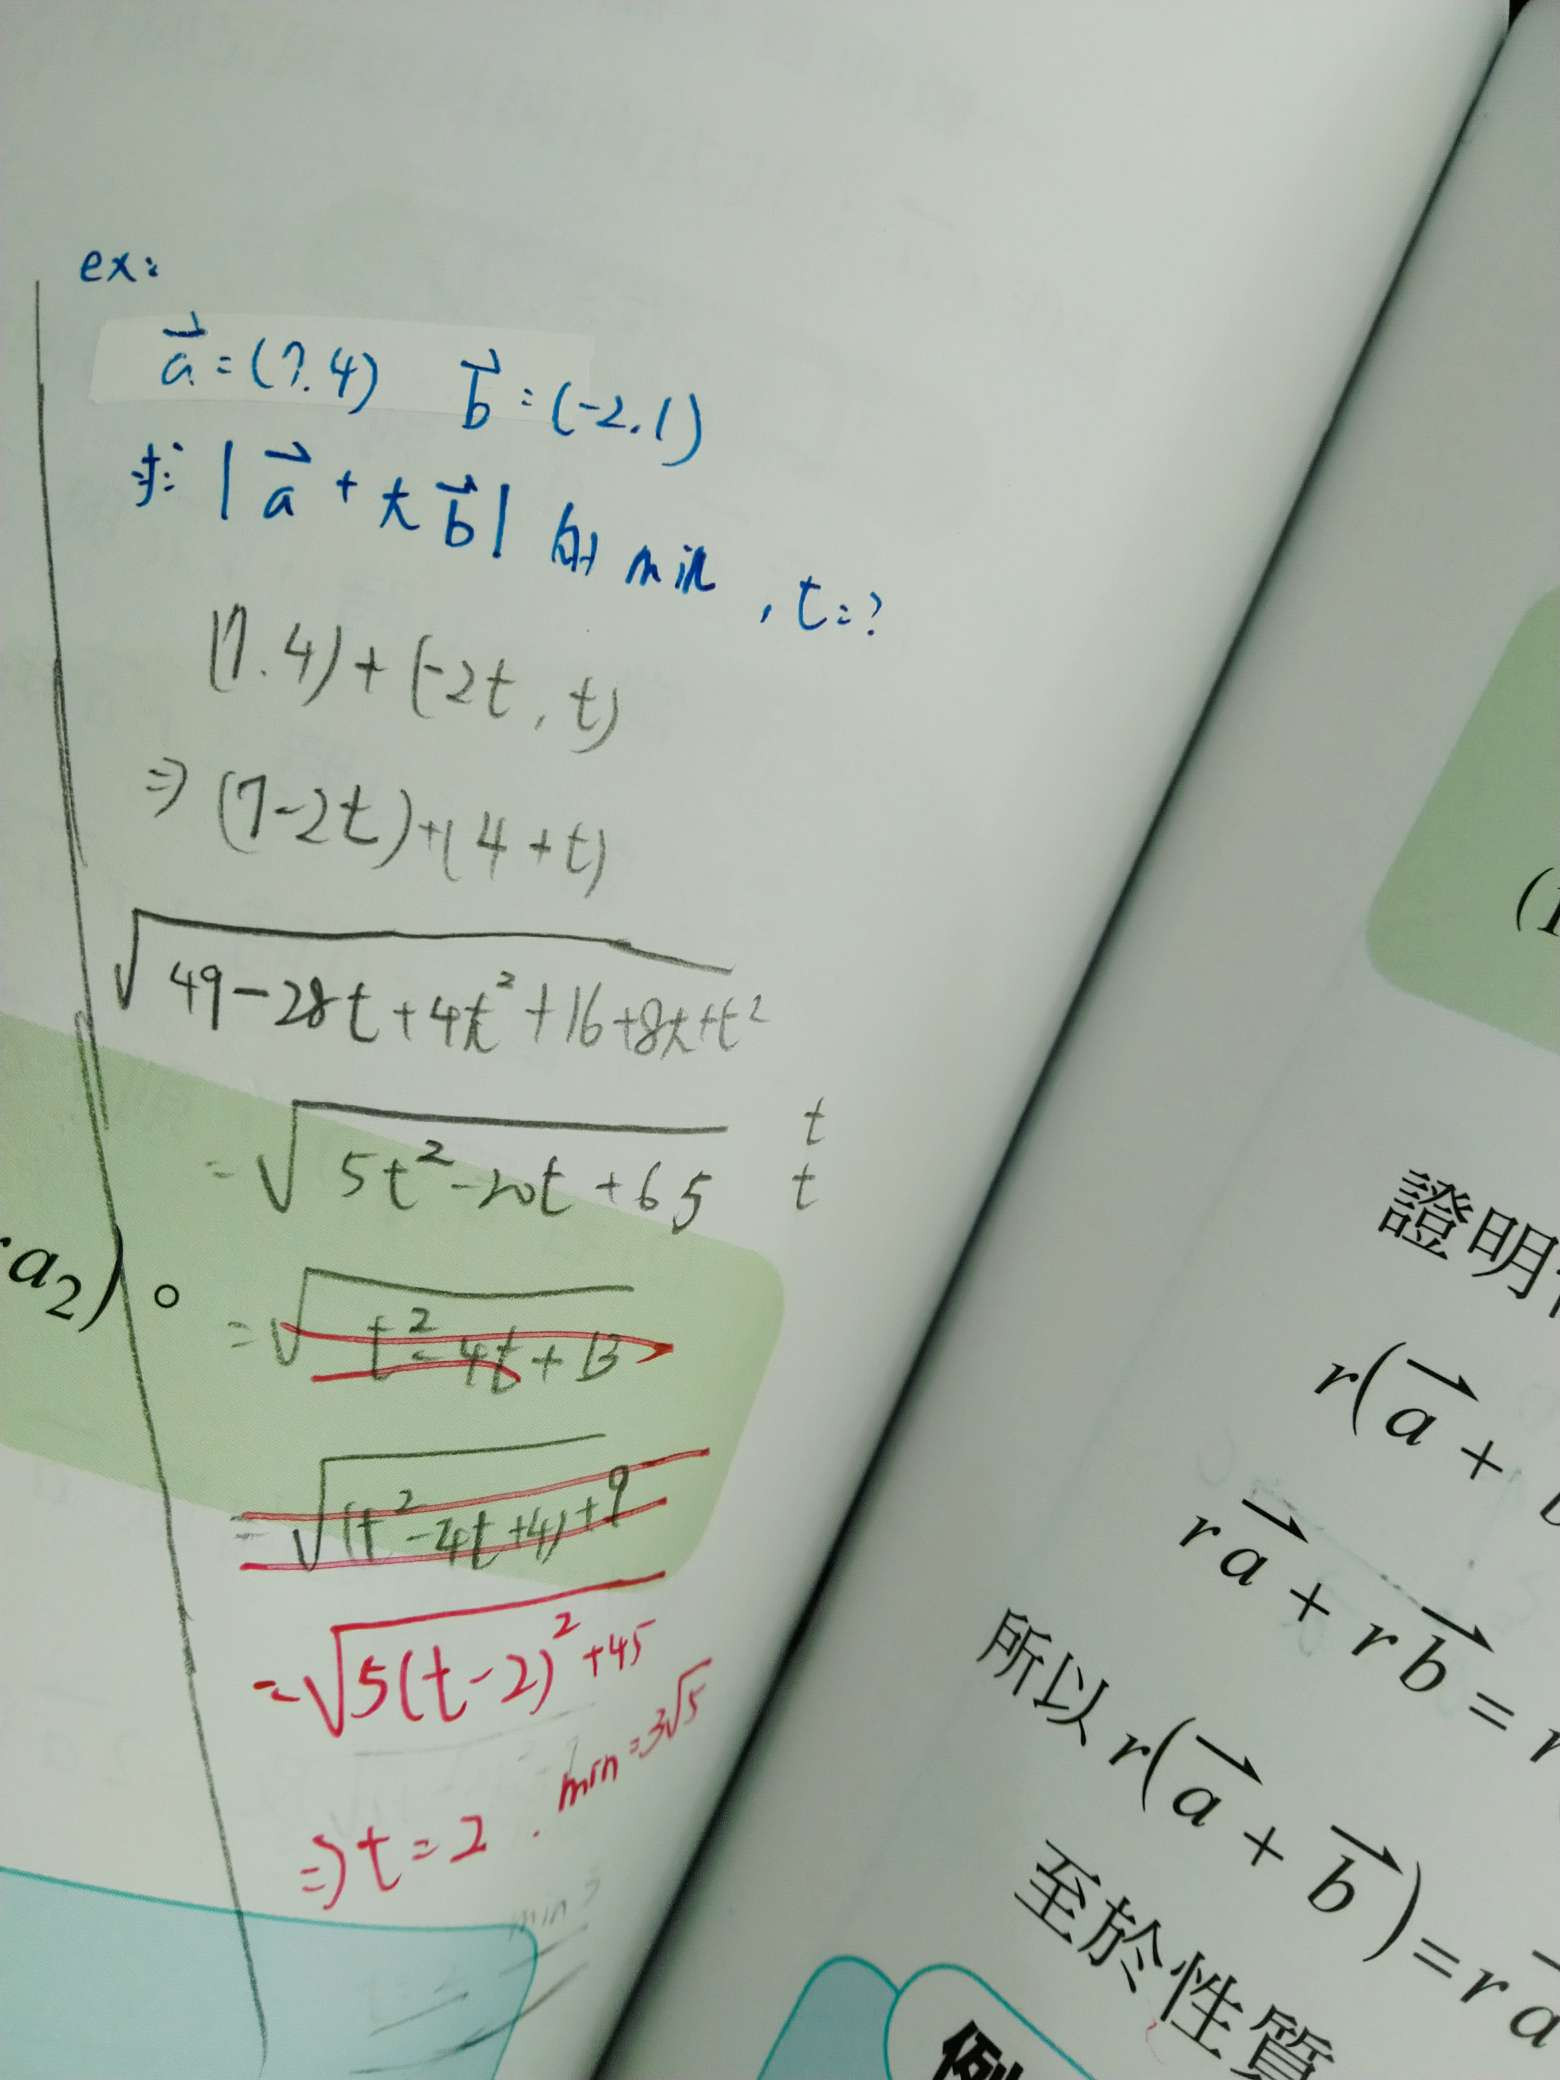 ex:
a⃗ = (7.4)  b⃗ = (-2.1)
求 | a⃗ + t b⃗ | 的 min , t=?
(7.4) + (-2t , t)
⇒ (7-2t)+(4+t)
√(49-28t+4t²+16+8t+t²)
t
= √(5t²-20t+65)  t
a₂)。
= √(t²-4t+13)
= √((t²-4t+4)+9)
= √(5(t-2)²+45)
⇒ t=2 . min=3√5
min
證明
r(a⃗ +
r a⃗ + r b⃗ = r
所以 r(a⃗ + b⃗) = r a⃗
至於性質